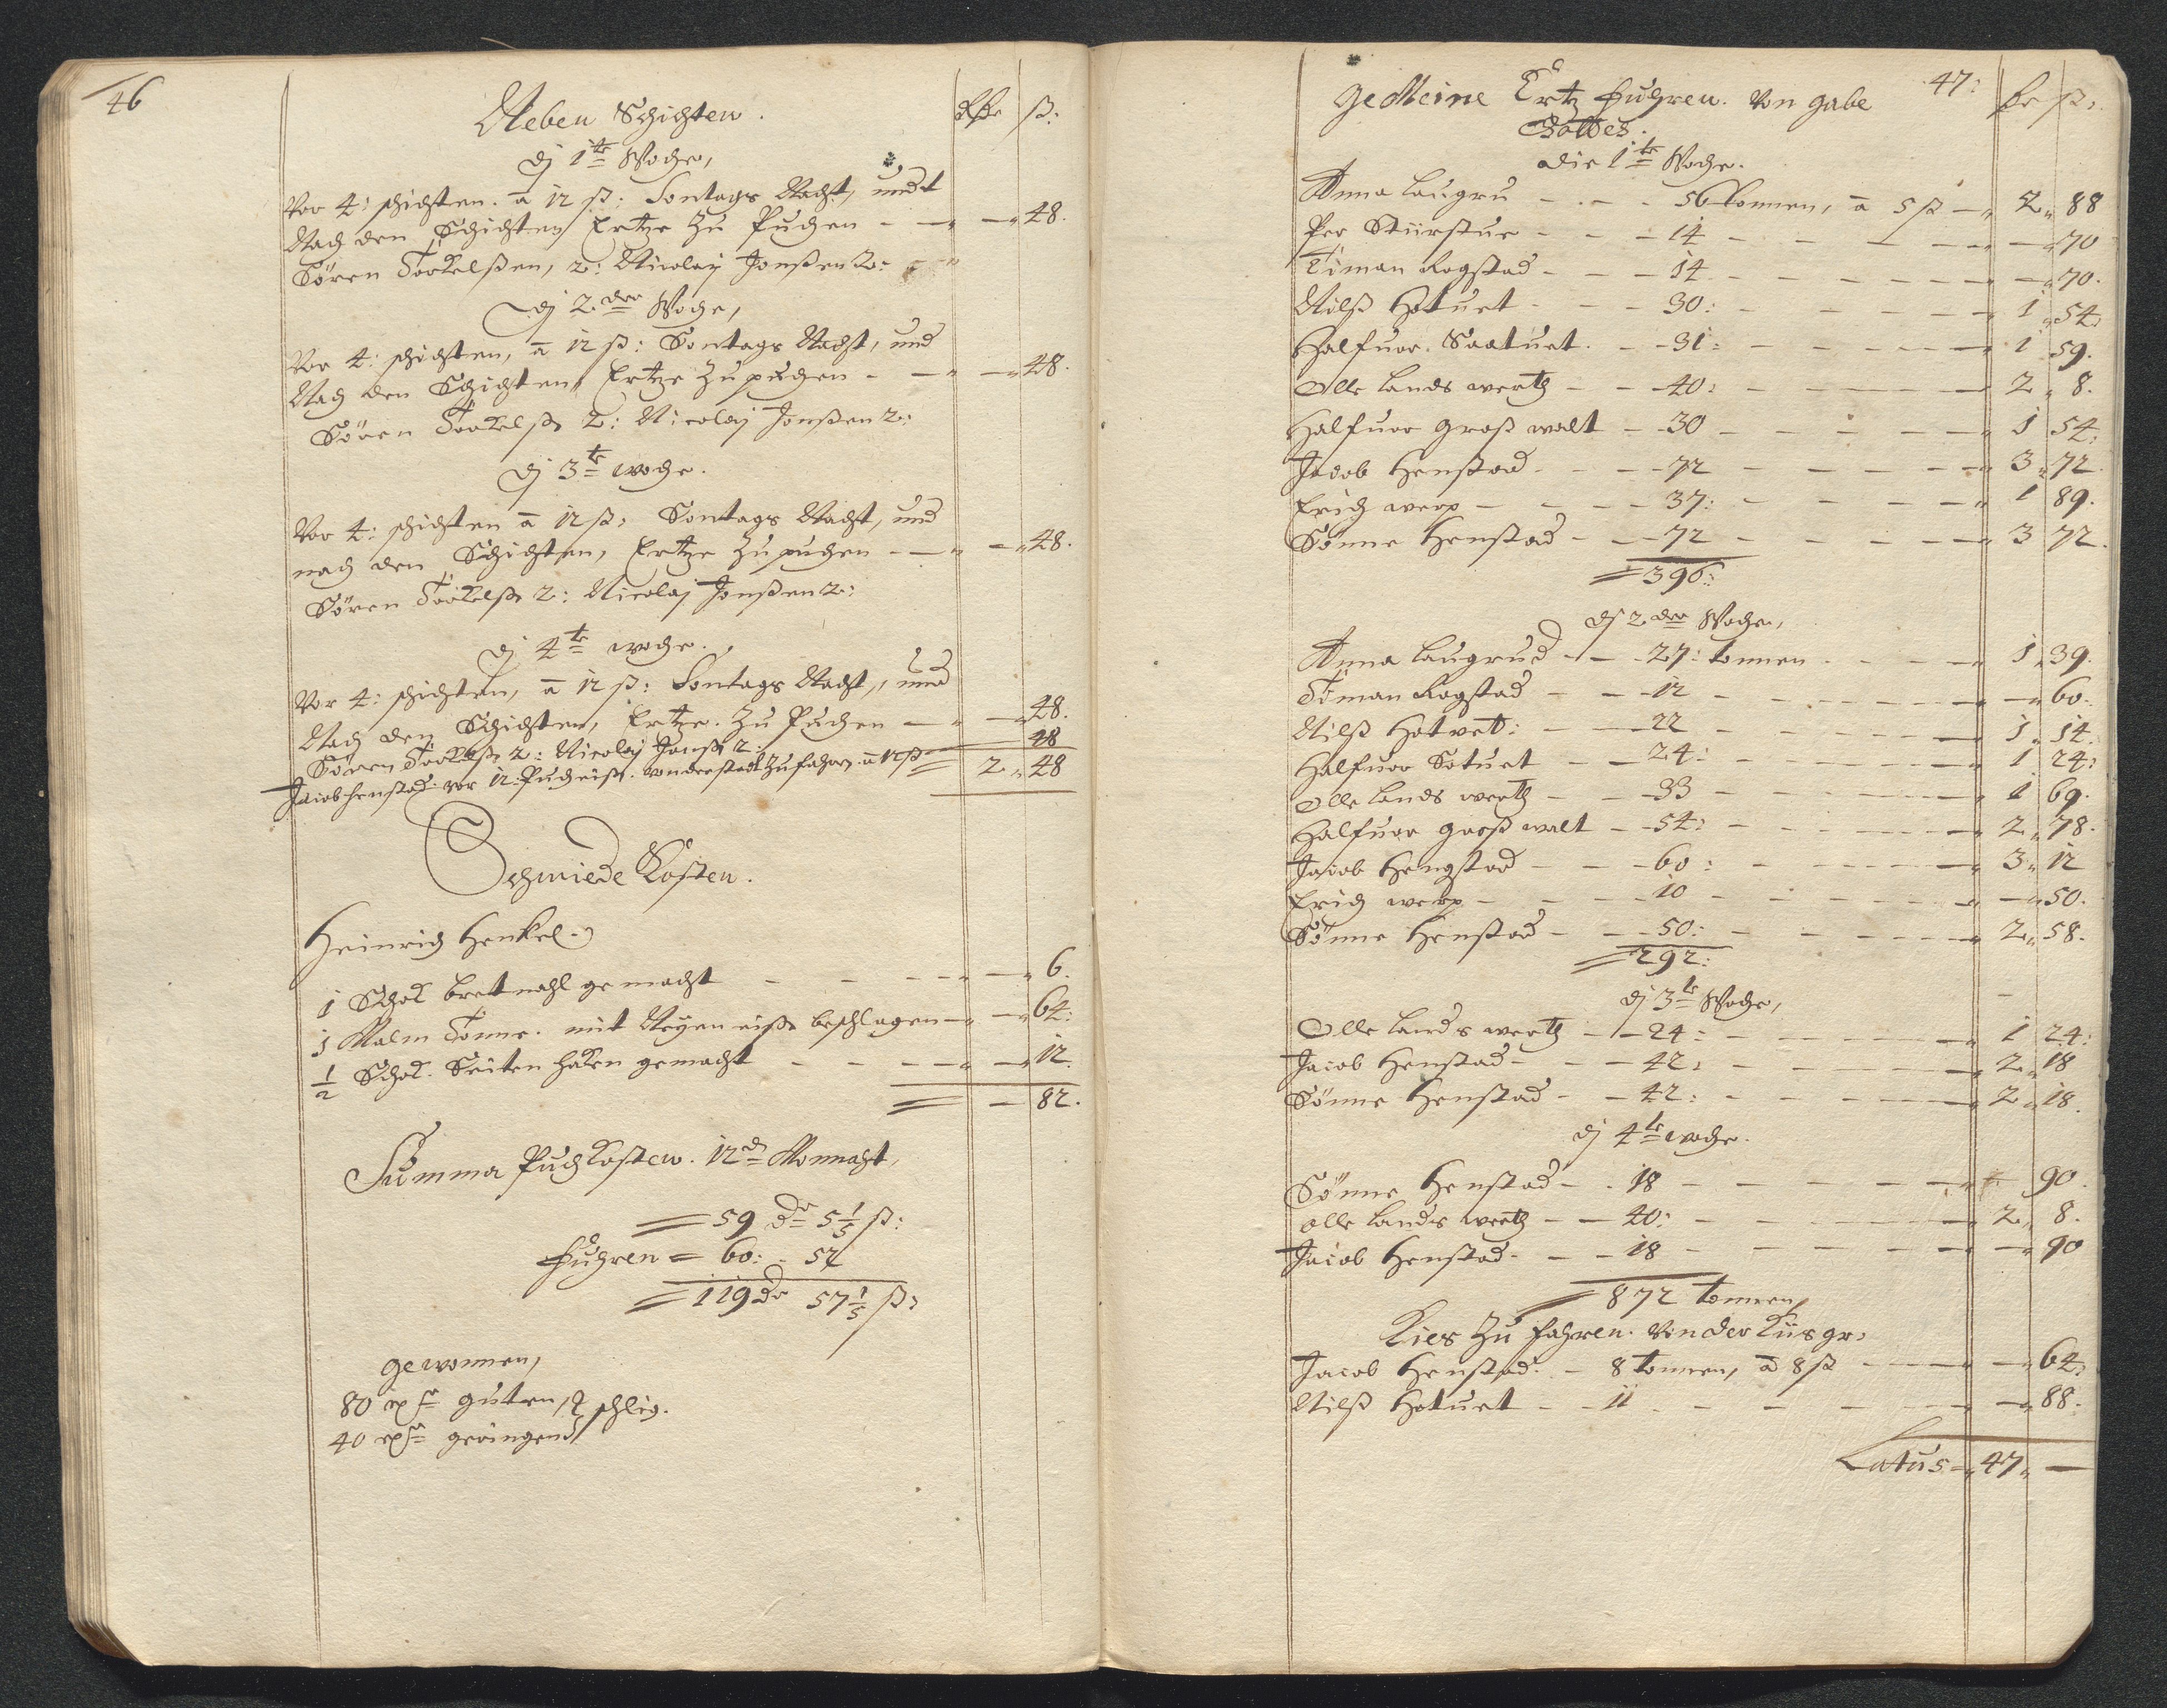 46
Neben Schichten. Rthr ß:
dj 1te Woche,
Vor 4: schichten. a 12 ß: Sontags Nacht, undt
Nach den Schichten Ertze Zu Puchen - - " - " 48.
Sören Torkelßen, 2: Nicolaij Jonßen 2:
dj 2der Woche,
Vor 4: schichten, a 12 ß: Sontags Nacht, und
Nach den Schichten, Ertze Zu puchen - - " - " 48.
Sören Torkelß 2: Nicolaj Jonßen 2:
dj 3te woche.
Vor 4: schichten a 12 ß: Sontags Nacht, und
nach den Schichten, Ertze Zu puchen - - " - " 48.
Sören Torkelß 2: Nicolaj Jonßen 2:
dj 4te woche.
Vor 4: schichten, a 12 ß: Sontags Nacht, und
Nach den Schichten, Ertze. Zu Puchen - " - " 48.
Sören Torkelß 2: Nicolaj Jonß 2: 48
Jacob Henstad. vor 12: Pucheiß. Zu fahren a 12 ß = 2 " 48
Schmiede Kosten.
Heinrich Henkel.
1 Schok bret nahl gemacht - - - " - " 6.
1 Malm Tonne. mit Neyen eiße beschlagen - " - " 64:
1/2 Schok. Seiten haken gemacht - - - - " - " 12.
= - 82.
Summa Puchkosten. 12de Monnaht,
= 59 dr 5 1/5 ß:
fuhren = 60: - 52
= 119 dr 57 1/5 ß:
gewonnen,
80 guten, schlig.
40 geringen
47:
Gemeine Ertz fuhren. Von gabe ß:
Gottes.
die 1te Woche.
Anna Laugru - - - 56 tonnen, a 5 ß - " 2 " 88
Per Stürstue - - - 14 - - - - - " 70
Timan Rogstad - - - 14 - - - - - " 70.
Nilß Hotuet - - - 30: - - - - 1 " 54:
Halfuor. Saatuet. - - 31: - - - - 1 59.
Olle Lands werch - - 40: - - - - 2 " 8.
Halfuor groß walt - - 30 - - - - 1 54:
Jacob Henstad - - - 72 - - - - " 3 " 72.
Erich werp - - - - 37: - - - - " 1 89.
Sönne Henstad - - - 72 - - - - 3 72.
= 396:
dj 2der Woche,
Anna Laugrud - - - 27: tonnen. - - - " 1 " 39.
Timan Rogstad - - - 12 - - - - - " 60.
Nilß Hotvet: - - - 22 - - - - 1 " 14.
Halfuor Sotuet - - 24: - - - - " 1 24:
Olle Lands werch - - 33 - - - - " 1 69.
Halfuor groß walt - - 54: - - - - " 2 " 78.
Jacob Hengstad - - - 60: - - - - " 3 " 12
Erich werp - - - - 10 - - - - " - " 50.
Sönne Henstad - - - 50: - - - - " 2 " 58.
= 292:
dj 3te Woche,
Olle Lands werch - - 24: - - - - 1 24:
Jacob Henstad - - - 42: - - - - " 2 " 18
Sönne Henstad - - 42: - - - - " 2 " 18.
dj 4te woche.
Sönne Henstad - - 18 - - - - " 90.
Olle Lands werch - - 40: - - - - " 2 " 8.
Jacob Henstad - - - 18 - - - - - " 90
= 872 tonnen,
Kies Zu fahren. Von der Kiisgr:
Jacob Henstad: - 8 tonnen, a 8 ß - - - - " 64:
Nilß Hotuet - - 11 - - - - - " 88.
Latus - " 47 " -